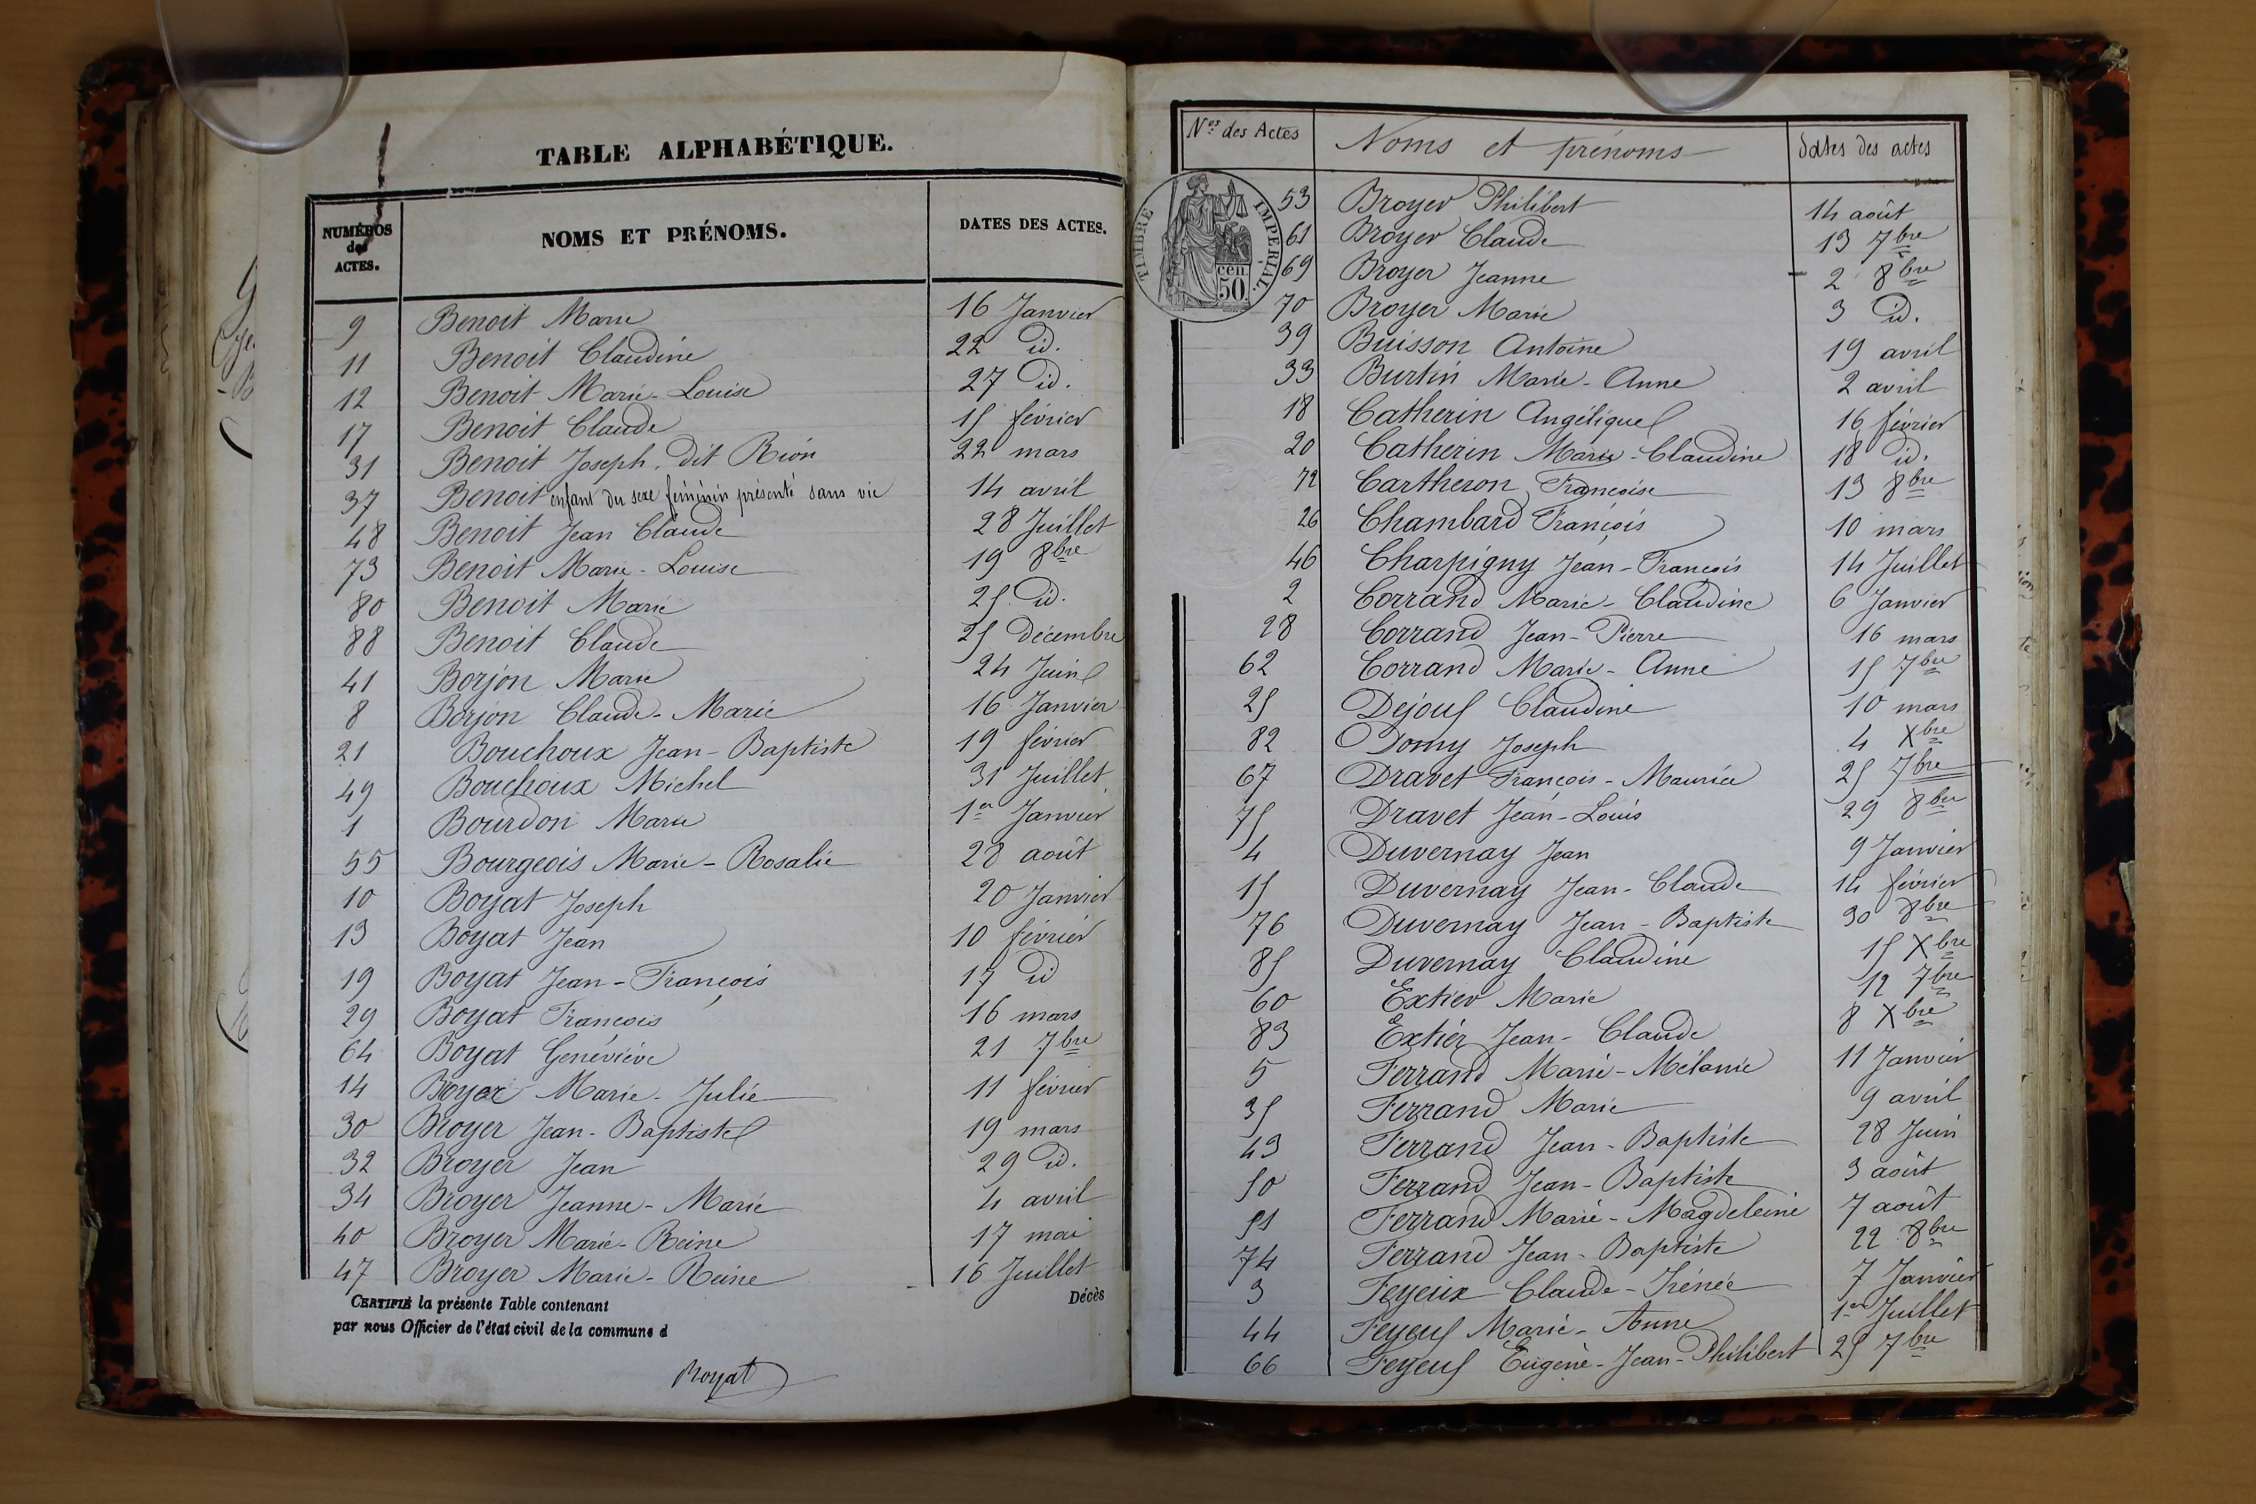 TABLE ALPHABÉTIQUE.
NUMÉROS des ACTES. NOMS ET PRÉNOMS. DATES DES ACTES.
9 Benoit Marie 16 Janvier
11 Benoit Claudine 22 id.
12 Benoit Marie-Louise 27 id.
17 Benoit Claude 15 février
31 Benoit Joseph, dit Rion 22 mars
37 Benoit enfant du sexe féminin présenté sans vie 14 avril
48 Benoit Jean Claude 28 Juillet
73 Benoit Marie-Louise 19 8bre
80 Benoit Marie 25 id.
88 Benoit Claude 25 décembre
41 Borjon Marie 24 Juin
8 Borjon Claude-Marie 16 Janvier
21 Bouchoux Jean-Baptiste 19 février
49 Bouchoux Michel 31 Juillet
1 Bourdon Marie 1er Janvier
55 Bourgeois Marie-Rosalie 28 août
10 Boyat Joseph 20 Janvier
13 Boyat Jean 10 février
19 Boyat Jean-François 17 id
29 Boyat François 16 mars
64 Boyat Généviève 21 7bre
14 Marie-Julie 11 février
30 Broyer Jean-Baptiste 19 mars
32 Broyer Jean 29 id.
34 Broyer Jeanne-Marie 4 avril
40 Broyer Marie-Reine 17 mai
47 Broyer Marie-Reine 16 Juillet
CERTIFIÉ la présente Table contenant Décès
par nous Officier de l'état civil de la commune d
Broyat
Nos des Actes Noms et prénoms dates des actes
TIMBRE IMPÉRIAL.
50 cen.
53 Broyer Philibert 14 août
61 Broyer Claude 13 7bre
69 Broyer Jeanne 2 8bre
70 Broyer Marie 3 id.
39 Buisson Antoine 19 avril
33 Burtin Marie-Anne 2 avril
18 Catherin Angélique 16 février
20 Catherin Marie-Claudine 18 id.
72 Cartheron Françoise 13 8bre
26 Chambard François 10 mars
46 Charpigny Jean-François 14 Juillet
2 Corrand Marie-Claudine 6 Janvier
28 Corrand Jean-Pierre 16 mars
62 Corrand Marie-Anne 15 7bre
25 Dejous Claudine 10 mars
82 Domy Joseph 4 Xbre
67 Dravet François-Maurice 25 7bre
75 Dravet Jean-Louis 29 8bre
4 Duvernay Jean 9 Janvier
15 Duvernay Jean-Claude 14 février
76 Duvernay Jean-Baptiste 30 8bre
85 Duvernay Claudine 15 Xbre
60 Extier Marie 12 7bre
83 Extier Jean-Claude 8 Xbre
5 Ferrand Marie-Mélanie 11 Janvier
35 Ferrand Marie 9 avril
43 Ferrand Jean-Baptiste 28 Juin
50 Ferrand Jean-Baptiste 3 août
51 Ferrand Marie-Magdeleine 7 août
74 Ferrand Jean-Baptiste 22 8bre
3 Feyeux Claude-Irénée 7 Janvier
44 Feyeux Marie-Anne 1er Juillet
66 Feyeux Eugène-Jean-Philibert 25 7bre